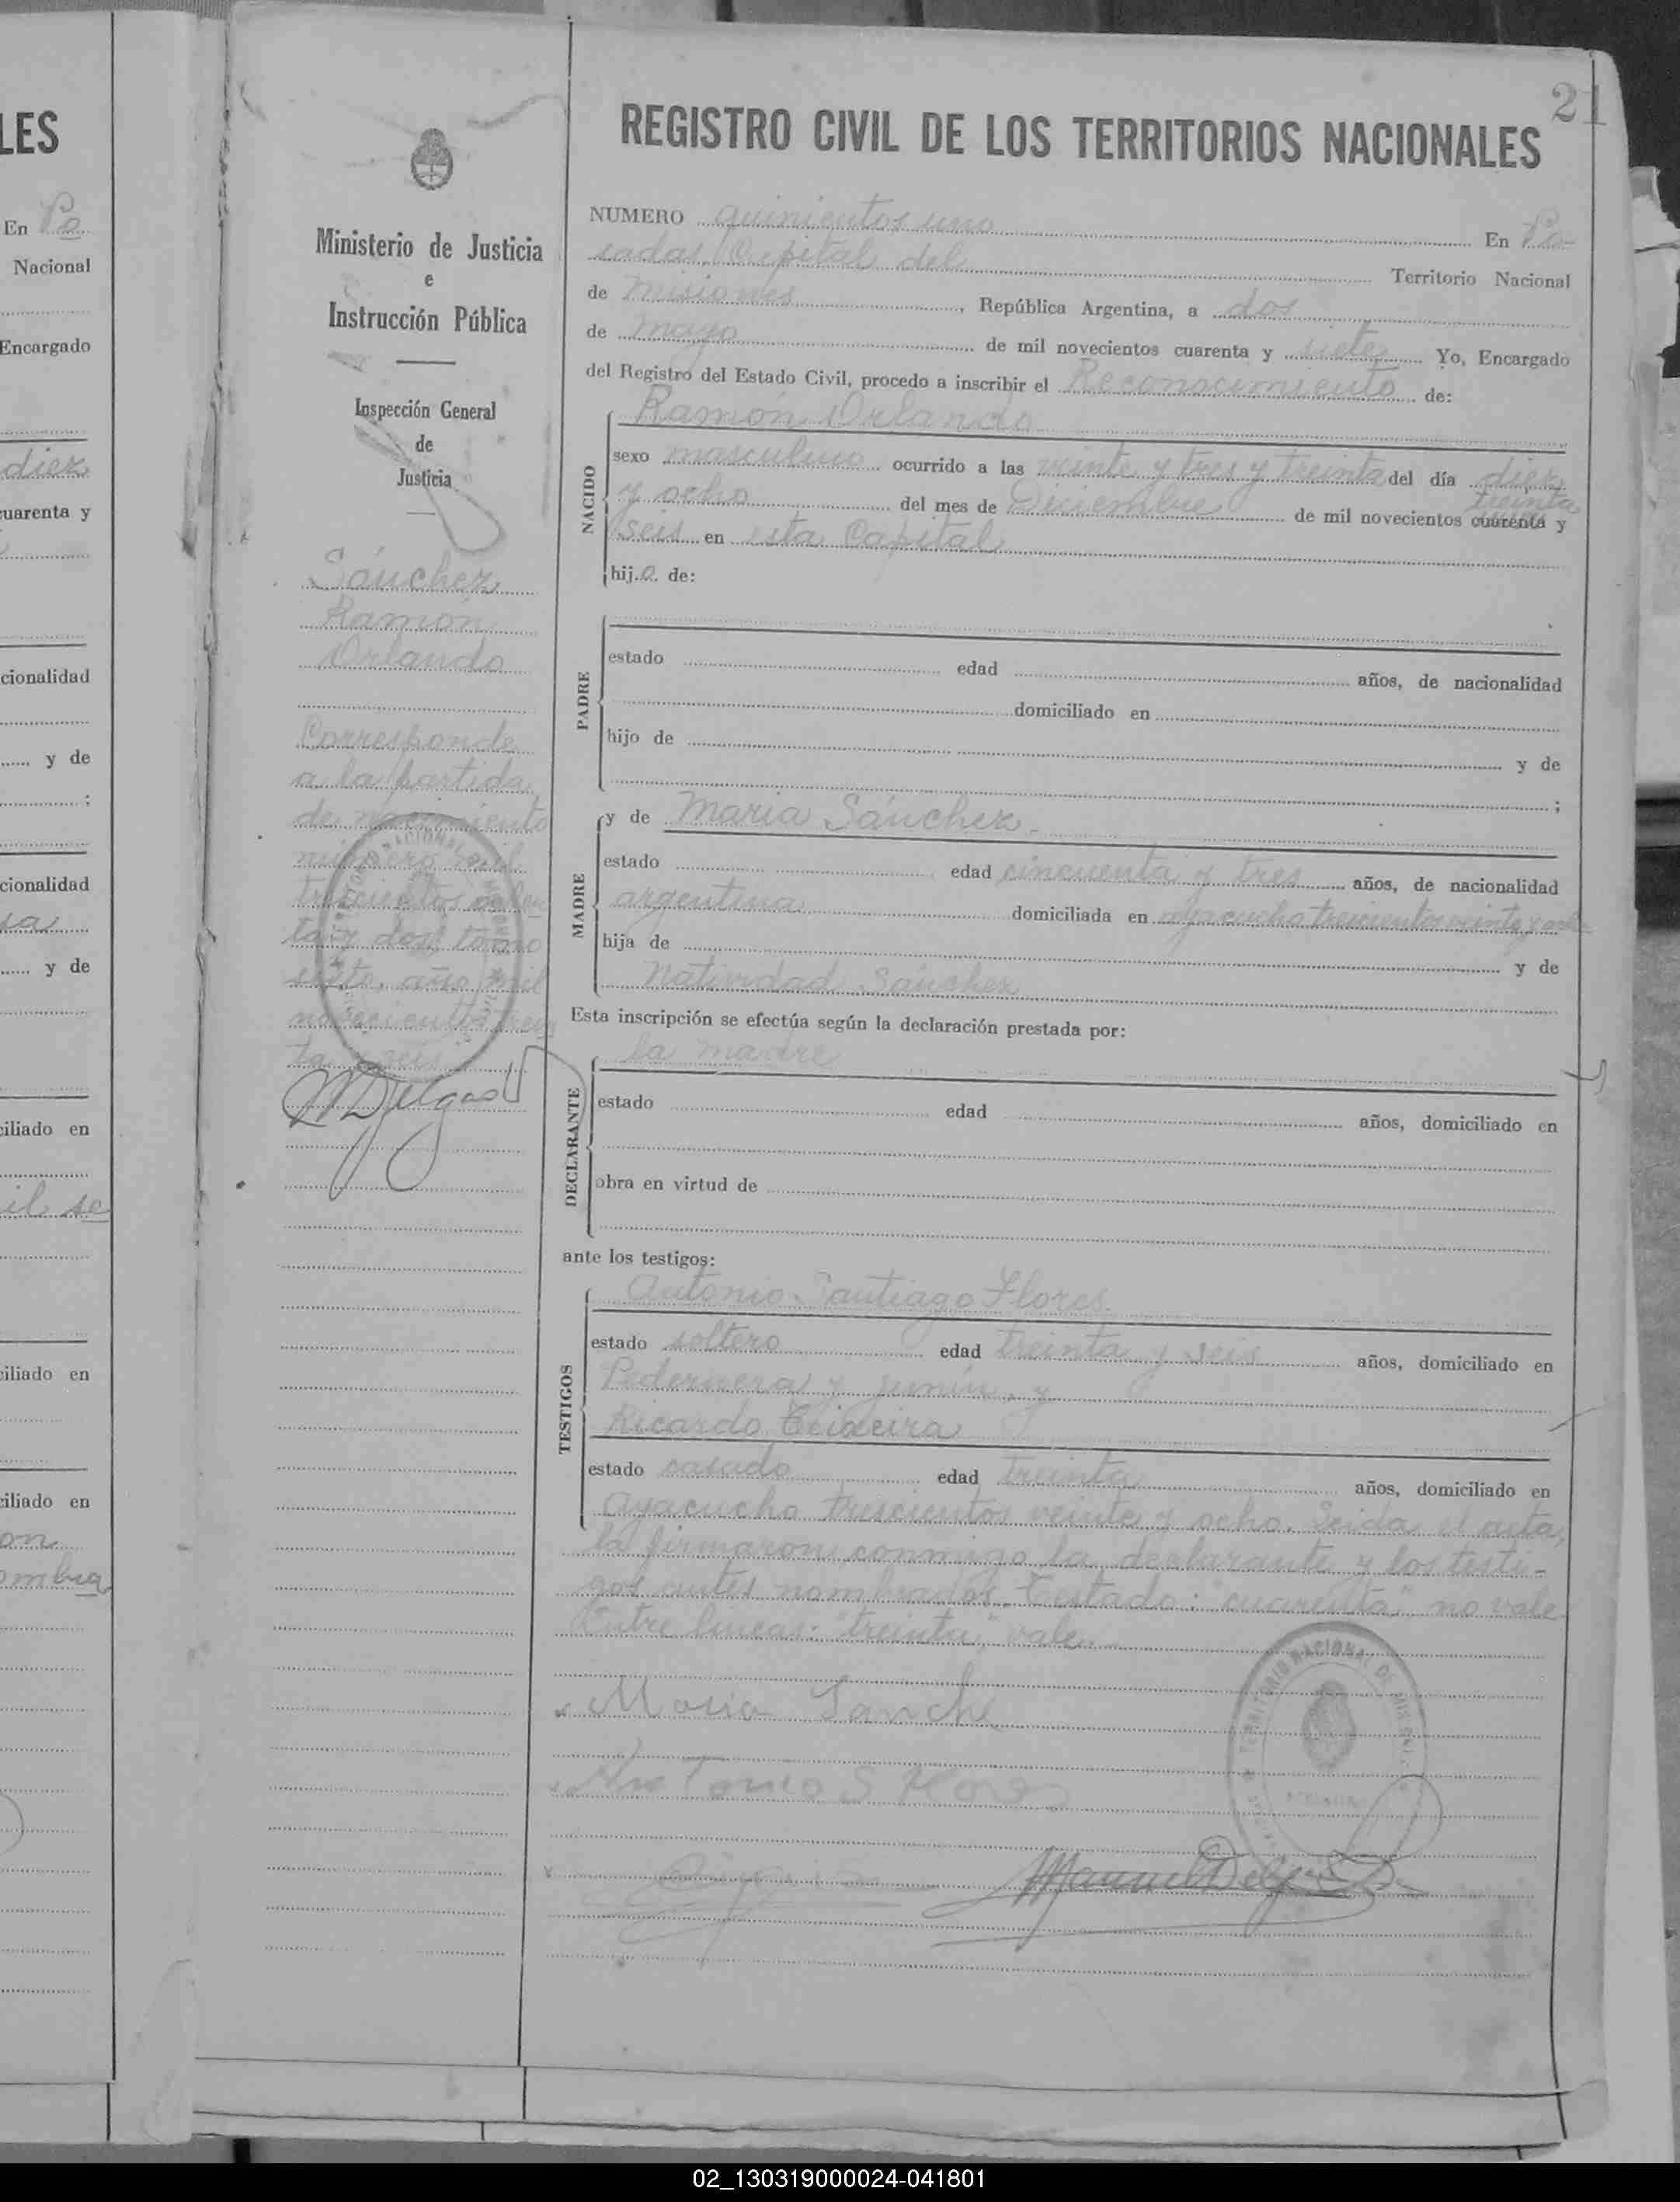 LES
En Po
Nacional
Encargado
diez
cuarenta y
cionalidad
y de
;
cionalidad
y de
ciliado en
il se
ciliado en
ciliado en
on
ombra
21
REGISTRO CIVIL DE LOS TERRITORIOS NACIONALES
Ministerio de Justicia
e
Instrucción Pública
Inspección General
de
Justicia
Sánchez
Ramón
Orlando
Corresponde
a la partida
de nacimiento
número mil
trescientos ochen
ta y dos, tomo
siete, año mil
novecientos trein
ta y seis
MDelgado
NUMERO quinientos uno En Po-
sadas, Capital del Territorio Nacional
de Misiones, República Argentina, a dos
de mayo de mil novecientos cuarenta y siete Yo, Encargado
del Registro del Estado Civil, procedo a inscribir el Reconocimiento de:
Ramón Orlando
NACIDO
sexo masculino ocurrido a las veinte y tres y treinta del día diez
treinta
y ocho del mes de Diciembre de mil novecientos cuarenta y
seis en esta Capital
hijo. de:
PADRE
estado edad años, de nacionalidad
domiciliado en
hijo de y de
;
MADRE
y de María Sánchez.
estado edad cincuenta y tres años, de nacionalidad
argentina domiciliada en Ayacucho trescientos veinte y ocho
hija de y de
Natividad Sánchez
Esta inscripción se efectúa según la declaración prestada por:
la madre
DECLARANTE
estado edad años, domiciliado en
obra en virtud de
ante los testigos:
Antonio Santiago Flores
TESTIGOS
estado soltero edad treinta y seis años, domiciliado en
Pedernera y Junín, y
Ricardo Teixeira
estado casado edad treinta años, domiciliado en
Ayacucho trescientos veinte y ocho. Leida el acta,
la firmaron conmigo la declarante y los testi-
gos antes nombrados. Testado: "cuarenta", no vale.
Entre lineas: "treinta", vale.
Maria Sanche
Antonio S Flores
TERRITORIO NACIONAL DE MISIONES
Manuel Delgado
02_130319000024-041801